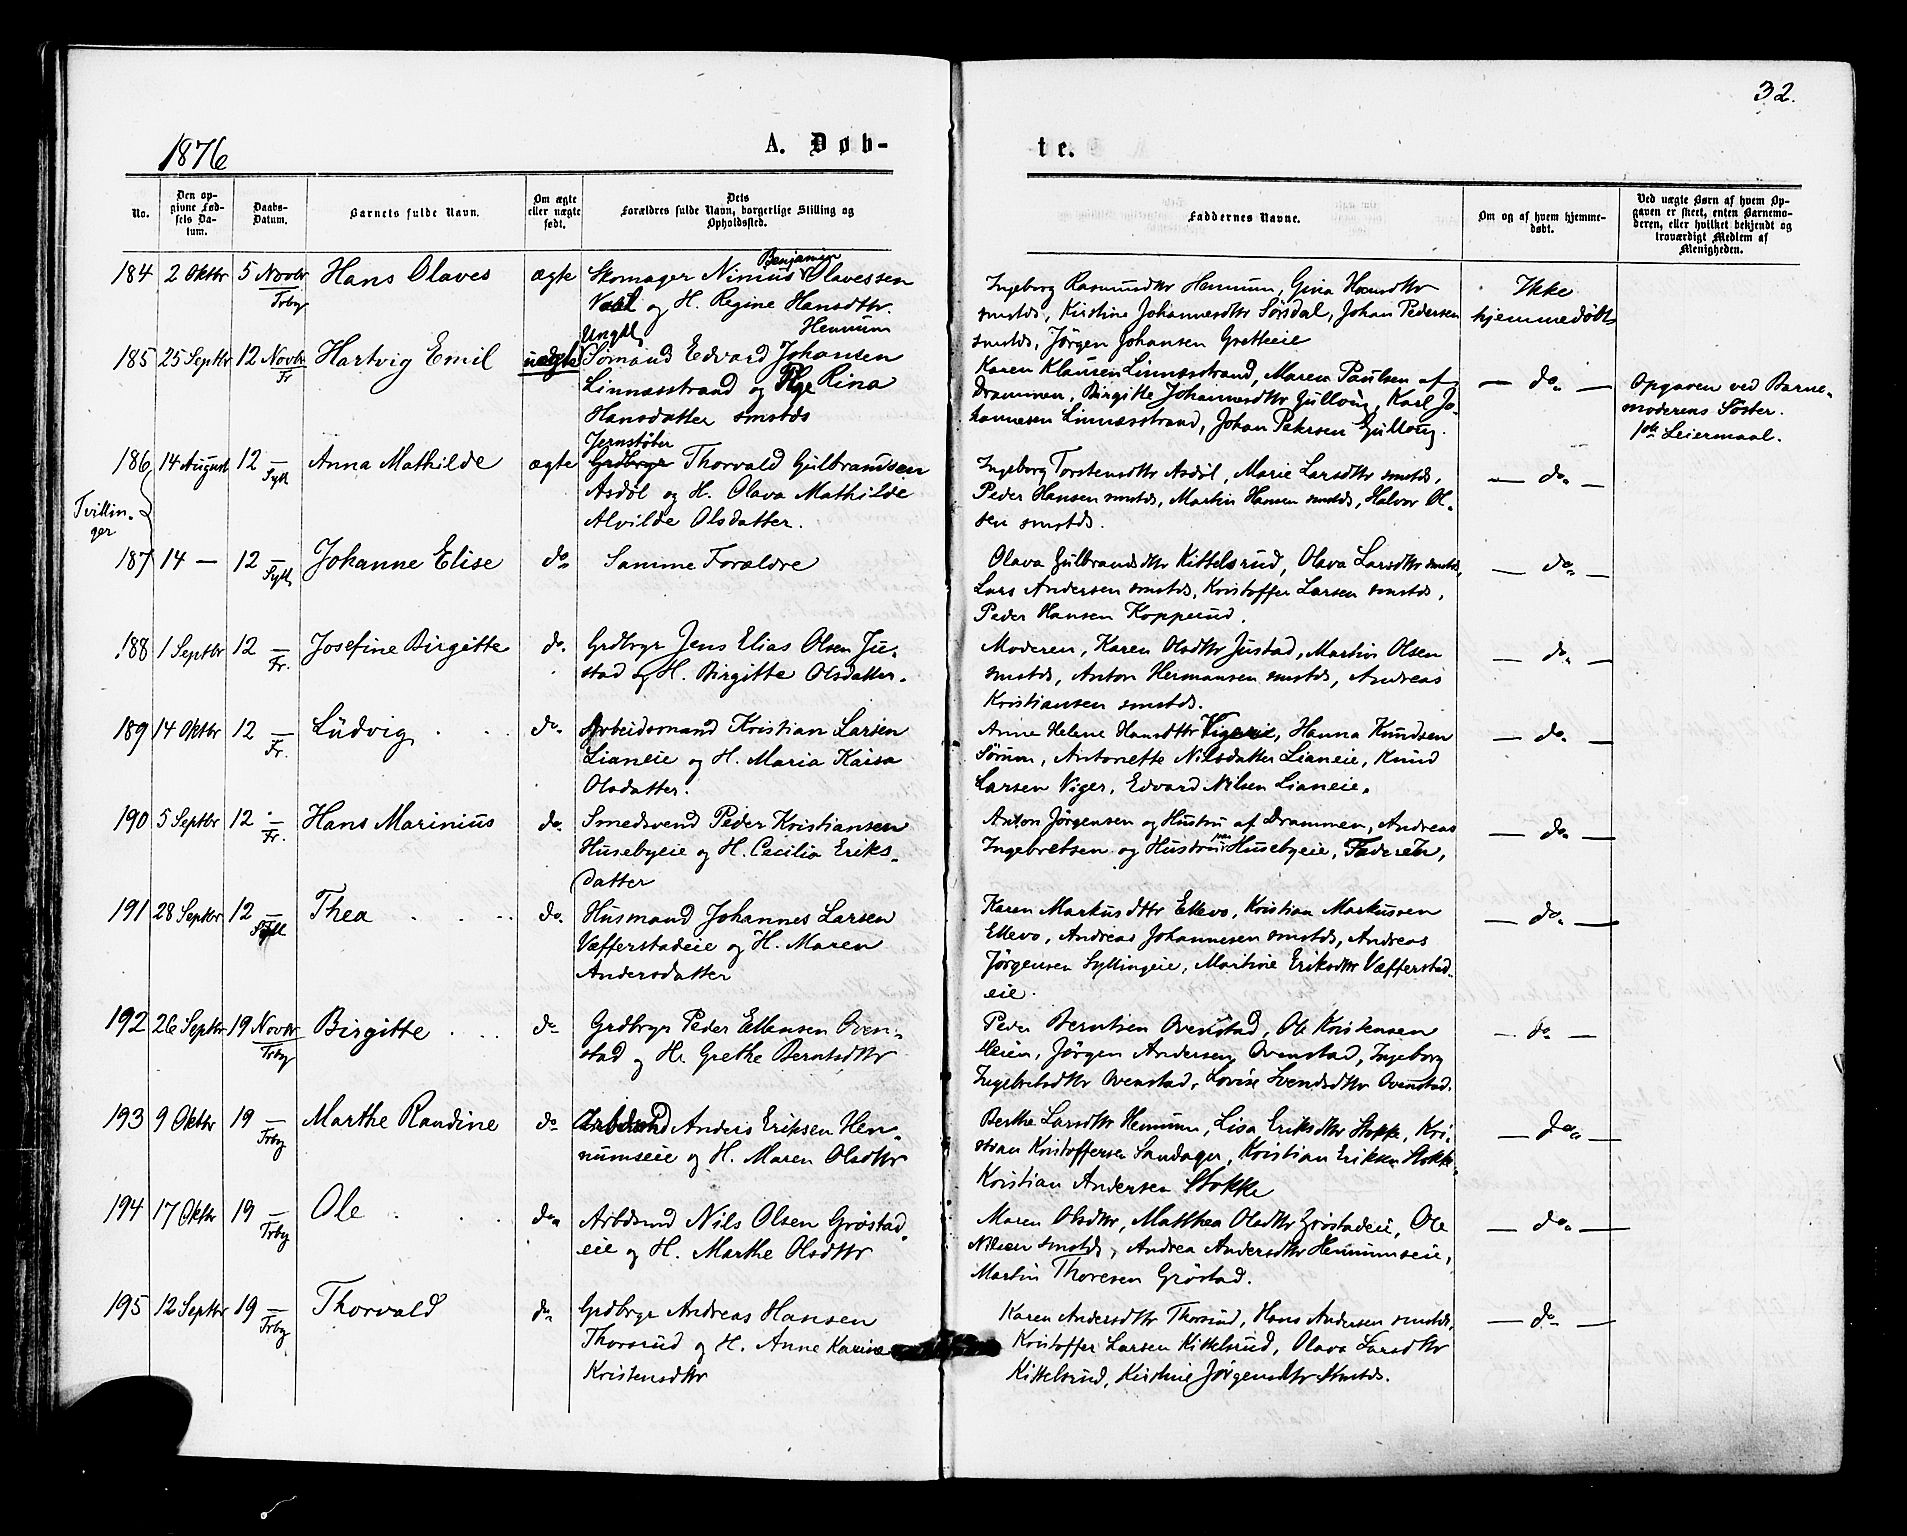 32.
1876
A. Døb-
te.
No.
Den opgivne Fødsels Datum.
Daabs-Datum.
Barnets fulde Navn.
Om ægte eller uægte født.
Dets Forældres fulde Navn, borgerlige Stilling og Opholdssted.
Faddernes Navne.
Om og af hvem hjemmedøbt.
Ved uægte Børn af hvem Opgaven er skeet, enten Barnemoderen, eller hvilket bekjendt og troværdigt Medlem af Menigheden.
184 2 Oktbr 5 Novbr Frby Hans Olaves ægte
Benjamin
Skomager Nimius Olavessen
og H. Regine Hansdttr.
Hennum
Ingeborg Rasmusdttr Hennum, Gina Hansdttr
smstds, Kirstine Johannesdttr Sørsdal, Johan Pedersen
smstds, Jørgen Johansen Gretteeie
Ikke
hjemmedøbt
185 25 Septbr 12 Novbr Fr Hartvig Emil uægte
Ungk
Sømand Edvard Johansen
Linnæsstrand og Pige Rina
Hansdatter smstds
Karen Klausen Linnæsstrand, Maren Paulsen af
Drammen, Birgitte Johannesdttr Gulloug, Karl Jo-
hannesen Linnæsstrand, Johan Petersen Gulloug.
— do. —
Opgaven ved Barne-
moderens Søster.
1ste Leiermaal.
Tvillin-
ger
186 14 August 12 — Syll Anna Mathilde ægte
Jernstøber
Grdbrgr Thorvald Gulbrandsen
Asdøl og H. Olava Mathilde
Alvilde Olsdatter.
Ingeborg Torstensdttr Asdøl, Marie Larsdttr smstds,
Peder Hansen smstds, Martin Hansen smstds, Halvor Ol-
sen smstds.
— do. —
187 14 — 12 — Syll Johanne Elise do.
Samme Forældre
Olava Gulbrandsdttr Kittelsrud, Olava Larsdttr smstds,
Lars Andersen smstds, Kristoffer Larsen smstds,
Peder Hansen Kopperud.
— do. —
188 1 Septbr 12 — Fr. Josefine Birgitte do.
Grdbrgr Jens Elias Olsen Ju-
stad og H. Birgitte Olsdatter.
Moderen, Karen Olsdttr Justad, Martin Olsen
smstds, Anton Hermansen smstds, Andreas
Kristiansen smstds.
— do. —
189 14 Oktbr 12 — Fr. Ludvig do.
Arbeidsmand Kristian Larsen
Lianeie og H. Maria Kaisa
Olsdatter.
Anne Helene Hansdttr Vigereie, Hanna Knudsen
Sørum, Antonette Nilsdatter Lianeie, Knud
Larsen Viger, Edvard Nilsen Lianeie.
— do. —
190 5 Septbr 12 — Fr. Hans Marinius do.
Smedsvend Peder Kristiansen
Husebyeie og H. Cecilia Eriks-
datter
Anton Jørgensen og Hustru af Drammen, Andreas
Ingebretsen og Hustru Husebyeie, Faderen,
— do. —
191 28 Septbr 12 — Syll Thea do.
Husmand Johannes Larsen
Væfferstadeie og H. Maren
Andersdatter
Karen Markusdttr Ellevo, Kristian Markussen
Ellevo, Andreas Johannesen smstds, Andreas
Jørgensen Syllingeie, Martine Eriksdttr Væfferstad-
eie.
— do. —
192 26 Septbr 19 Novbr Frby Birgitte do.
Grdbrgr Peder Ellensen Oven-
stad og H. Grethe Berntsdttr
Peder Berntsen Ovenstad, Ole Kristensen
Heien, Jørgen Andersen Ovenstad, Ingeborg
Ingebretsdttr Ovenstad, Lovise Svendsdttr Ovenstad.
— do. —
193 9 Oktbr 19 — Frby Marthe Randine do.
Anders Eriksen Hen-
numseie og H. Maren Olsdttr
Berthe Larsdttr Hennum, Lisa Eriksdttr Stokke, Kri-
stian Kristoffersen Sandager, Kristian Eriksen Stokke,
Kristian Andersen Stokke
— do. —
194 17 Oktbr 19 — Frby Ole do.
Arbdsmd Nils Olsen Grøstad-
eie og H. Marthe Olsdttr
Maren Olsdttr, Matthea Olsdttr Grøstadeie, Ole
Nilsen smstds, Andrea Andersdttr Hennumseie,
Martin Thoresen Grøstad.
— do. —
195 12 Septbr 19 — Frby Thorvald do.
Grdbrgr Andreas Hansen
Thorsrud og H. Anne Karine
Kristensdttr
Karen Andersdttr Thorsrud, Hans Andersen smstds,
Kristoffer Larsen Kittelsrud, Olava Larsdttr
Kittelsrud, Kirstine Jørgensdttr smstds.
— do. —